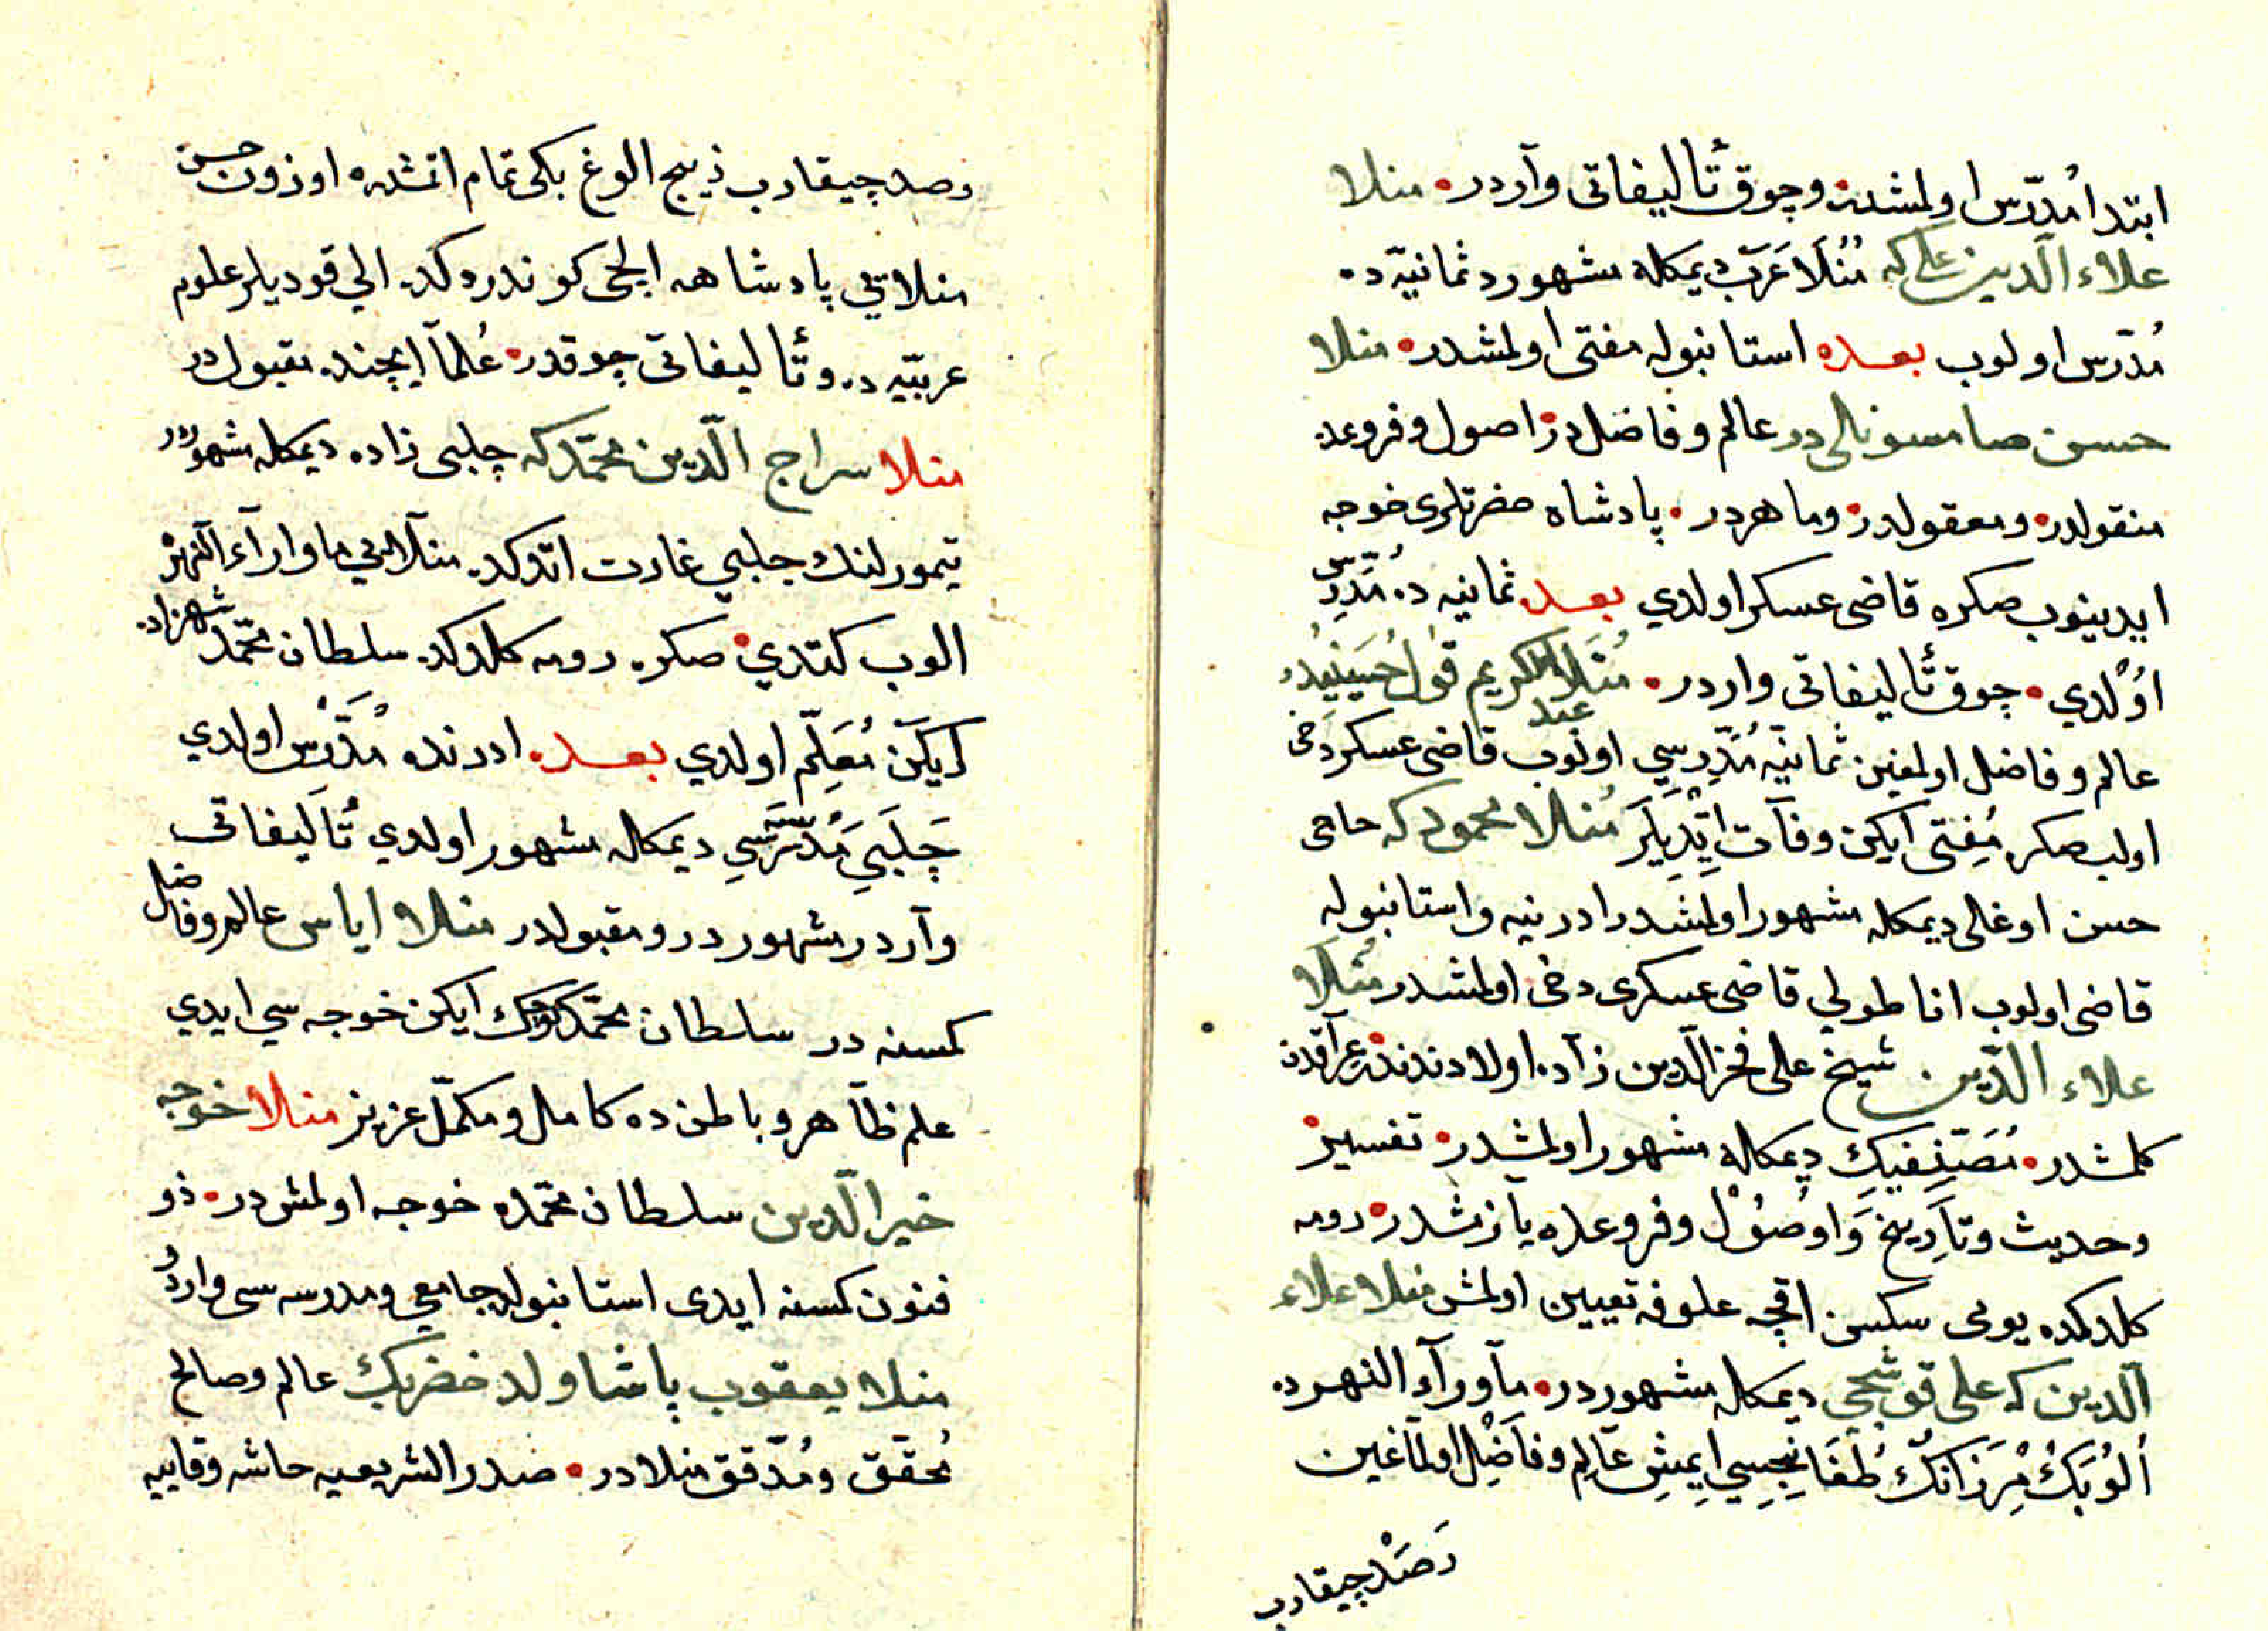 ابتدا مُدرّس اولمشدر وچوق تأليفاتى وآردر منلا
علاء الّدين على كه مُنْلَا عَرَب ديمكله مشهورد ثمانيّه ده
مُدرّس اولوب بعده استانبوله مفتى اولمشدر منلا
حسن صامسونالى در عالم وفاضل در اصول وفروعده
منقولدر ومعقولدر وماهردر پادشاه حضرتلرى خوجه
ايدينوب صكره قاضى عسكر اولدي بعده ثمانيه ده مُدَّرِس
اوُلدي چوق تأليفاتى واردر مُنَلا عبد الكريم قول حُسَينِيْدُر
عالم وفاضل اولمغين ثمانيّه مُدَّرِسِي اولوب قاضى عسكر دخى
اولب صكره مُفِتى ايكن وفآت اِتْدِيلَر مُنلا محمود كه حاجى
حسن اوغالى ديمكله مشهور اولمشدر ادرنيه واستانبوله
قاضى اولوب اناطولي قاضى عسكرى دخى اولمشدر مُنلَا
علاء الدّين شيخ على فخر الّدين زآده اولادندندر عرآقدن
كلمشدر مُصَنِّفيِك ديمكله مشهور اولمشدر تفسير
وحديث وتآَرِيخ وَاوُصُوْل وفروعده يازمشدر رومه
كلدكده يومى سكسن اقچه علوفه تعيين اولمش منلا علاء
الّدين كه على قوشجى ديمكله مشهوردر مآورآء النهرده
اُلوُبَكْ مْيِرَزانِكْ طُغَانِجِسِي اِيمِش عَالِم وفاَضِل اولمآغين
رَصَدْ چيقارب
رصد چيقارب ذيج الوغ بكى تمام اتمشدر اوزون حسن
منلايي پادشاهه ايلچى كوندردكده الي قوديلر علوم
عربيّه ده وتأليفاتى چوقدر عُلمآ ايچنده مقبولدر
منلا سراج الّدين محمّد كه چلبى زاده ديمكله مشهور
تيمورلنك جلبي غارت اتدكده منلايي ماوارآء النهره
الوب كتدي صكره رومه كلدكده سلطان محمّد شهزاده
اَيكَن مُعَلِّم اولدي بعده ادرنده مُدَّرْس اولدي
چَلَبِي مُدْرَسَه سِي ديمكاله مشهور اولدي تُأَليفاتى
وآردر مشهوردر ومقبولدر منلا اياس عالم وفاضل
كمسنه در سلطان محمّد كوچك ايكن خوجه سي ايدي
علم ظآهر وباطن ده كامل ومكمّل عزيز منلا خوجه
خير الّدين سلطان محمّده خوجه اولمش در ذو
فنون كمسنه ايدى استانبولده جامعي ومدرسه سى واردُر
منلا يعقوب پاشا ولد خضر بك عالم وصالح
مُحقّق ومُدّقق منلا در صدر الشريعيه حاشه وقاييه